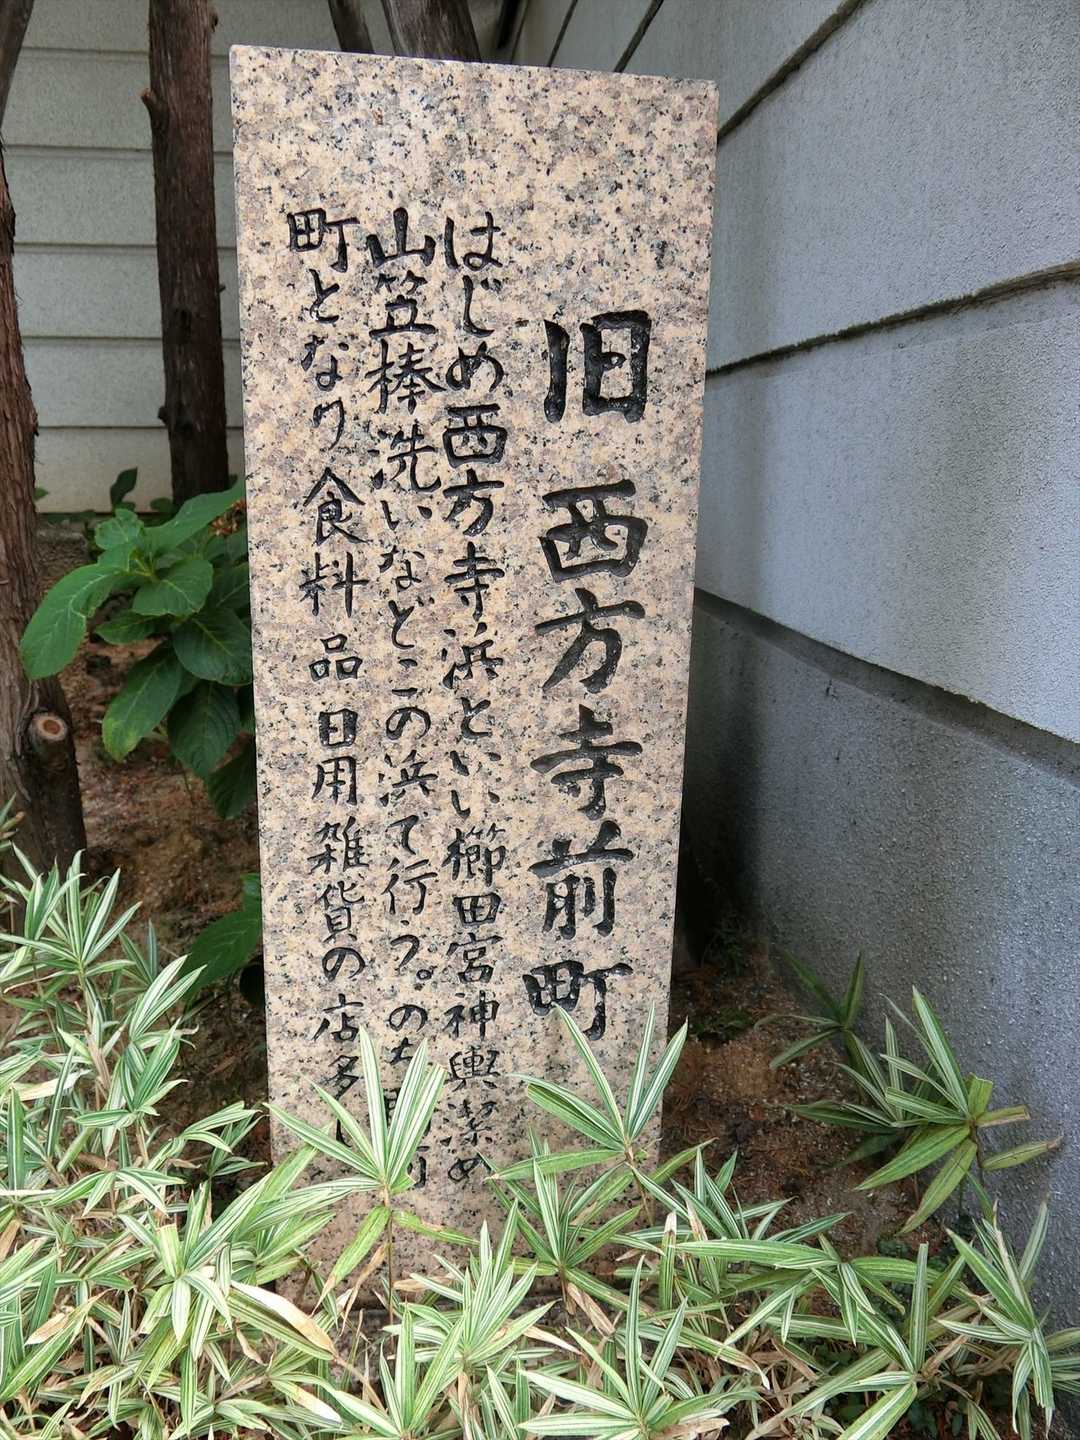 旧西方寺前町
はじめ西方寺浜といい櫛田宮神輿潔め
山笠棒洗いなどこの浜で行う。のち
町となり食料品日用雑貨の店多